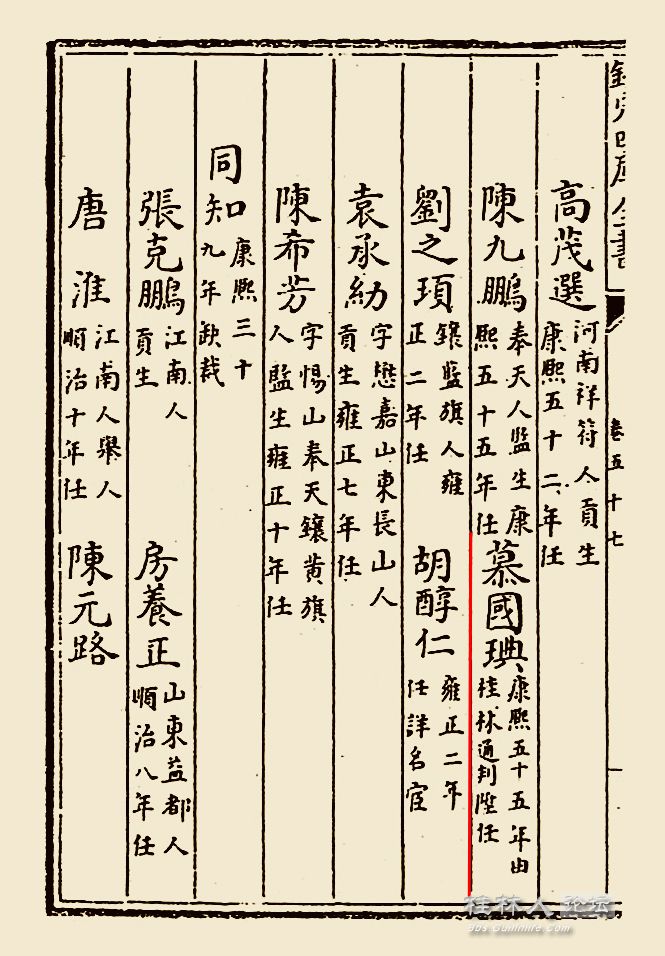 欽定四庫全書
卷五十七
一
高茂選
河南祥符人貢生
康熙五十二年任
陳九鵬
奉天人監生康
熙五十五年任
慕國琠
康熙五十五年由
桂林通判陞任
劉之頊
鑲藍旗人雍
正二年任
胡醇仁
雍正二年
任詳名宦
袁承幼
字懋嘉山東長山人
貢生雍正七年任
陳希芳
字惕山奉天鑲黃旗
人監生雍正十年任
同知
康熙三十
九年缺裁
張克鵬
江南人
貢生
房養正
山東益都人
順治八年任
唐淮
江南人舉人
順治十年任
陳元路
桂林人论坛
bbs.Guilinlife.com